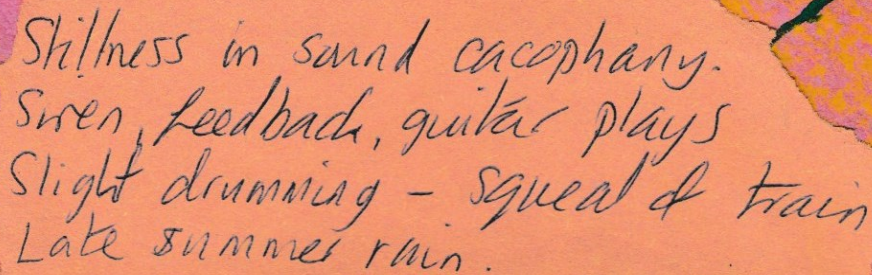 Stillness in sound cacophany.
Siren, feedback, guitar plays
Slight drumming – squeal of train
Late summer rain.